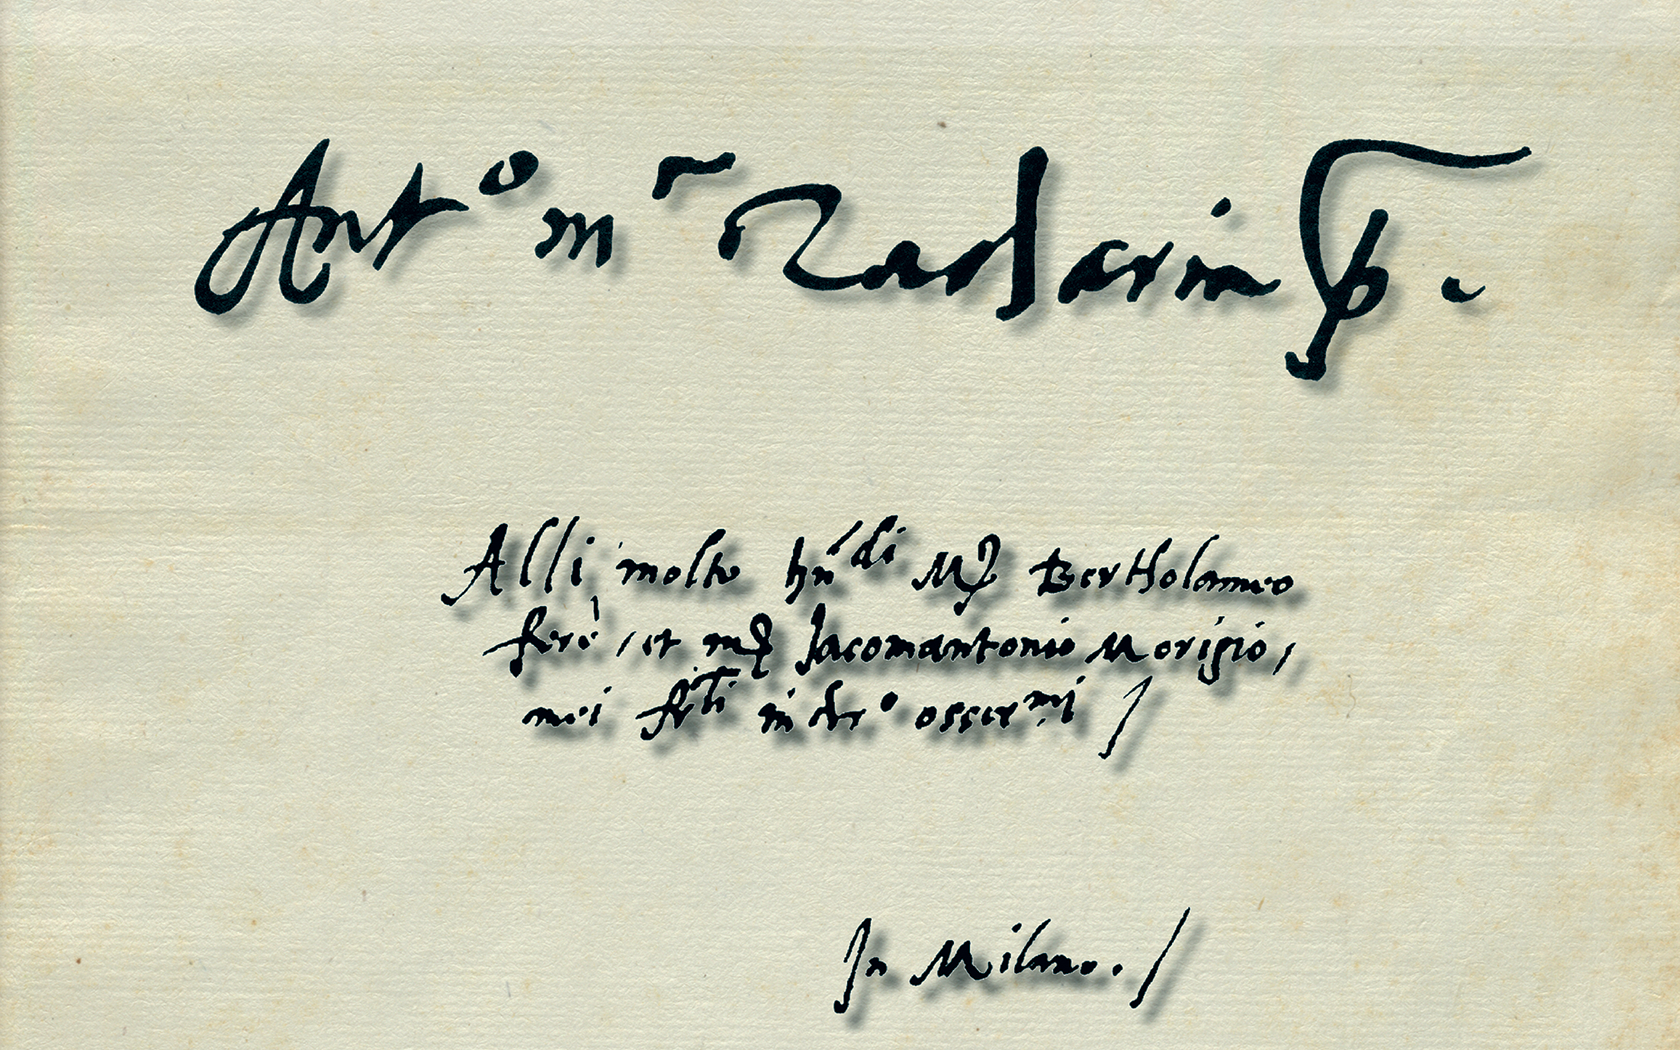 Ant.o m.r Zacharia p.
Alli molto hn.di M. Bertholameo
ferè, et m. Jacomantonio Morigio,
mei fr.ti in chr.o osser.mi /
In Milano. /